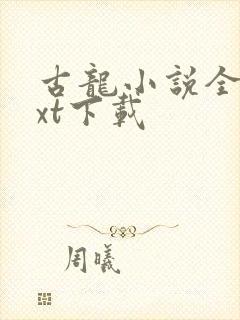 古龍小説全
xt下載
周曦